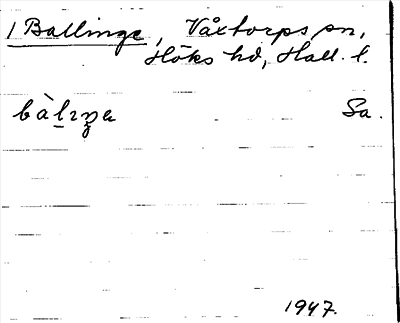 1 Ballinge, Våxtorps sn,
Höks hd, Hall. l.
Sa.
1947.